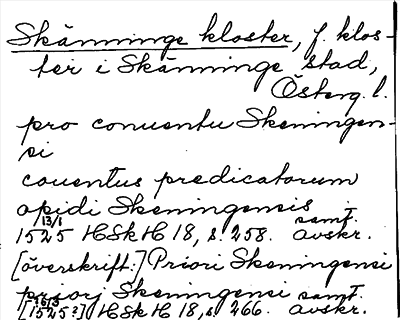 Skänninge kloster, f. klos-
ter i Skänninge stad,
Österg. l.
pro conuentu Skeningen-
si
couentus predicatorum
opidi Skeningensis
13/1 samt.
1525 HSkH 18, s. 258. avskr.
[överskrift:] Priori Skeningensi
priorj Skeningensi samt.
[1525?] HSkH 18, s. 266. avskr.